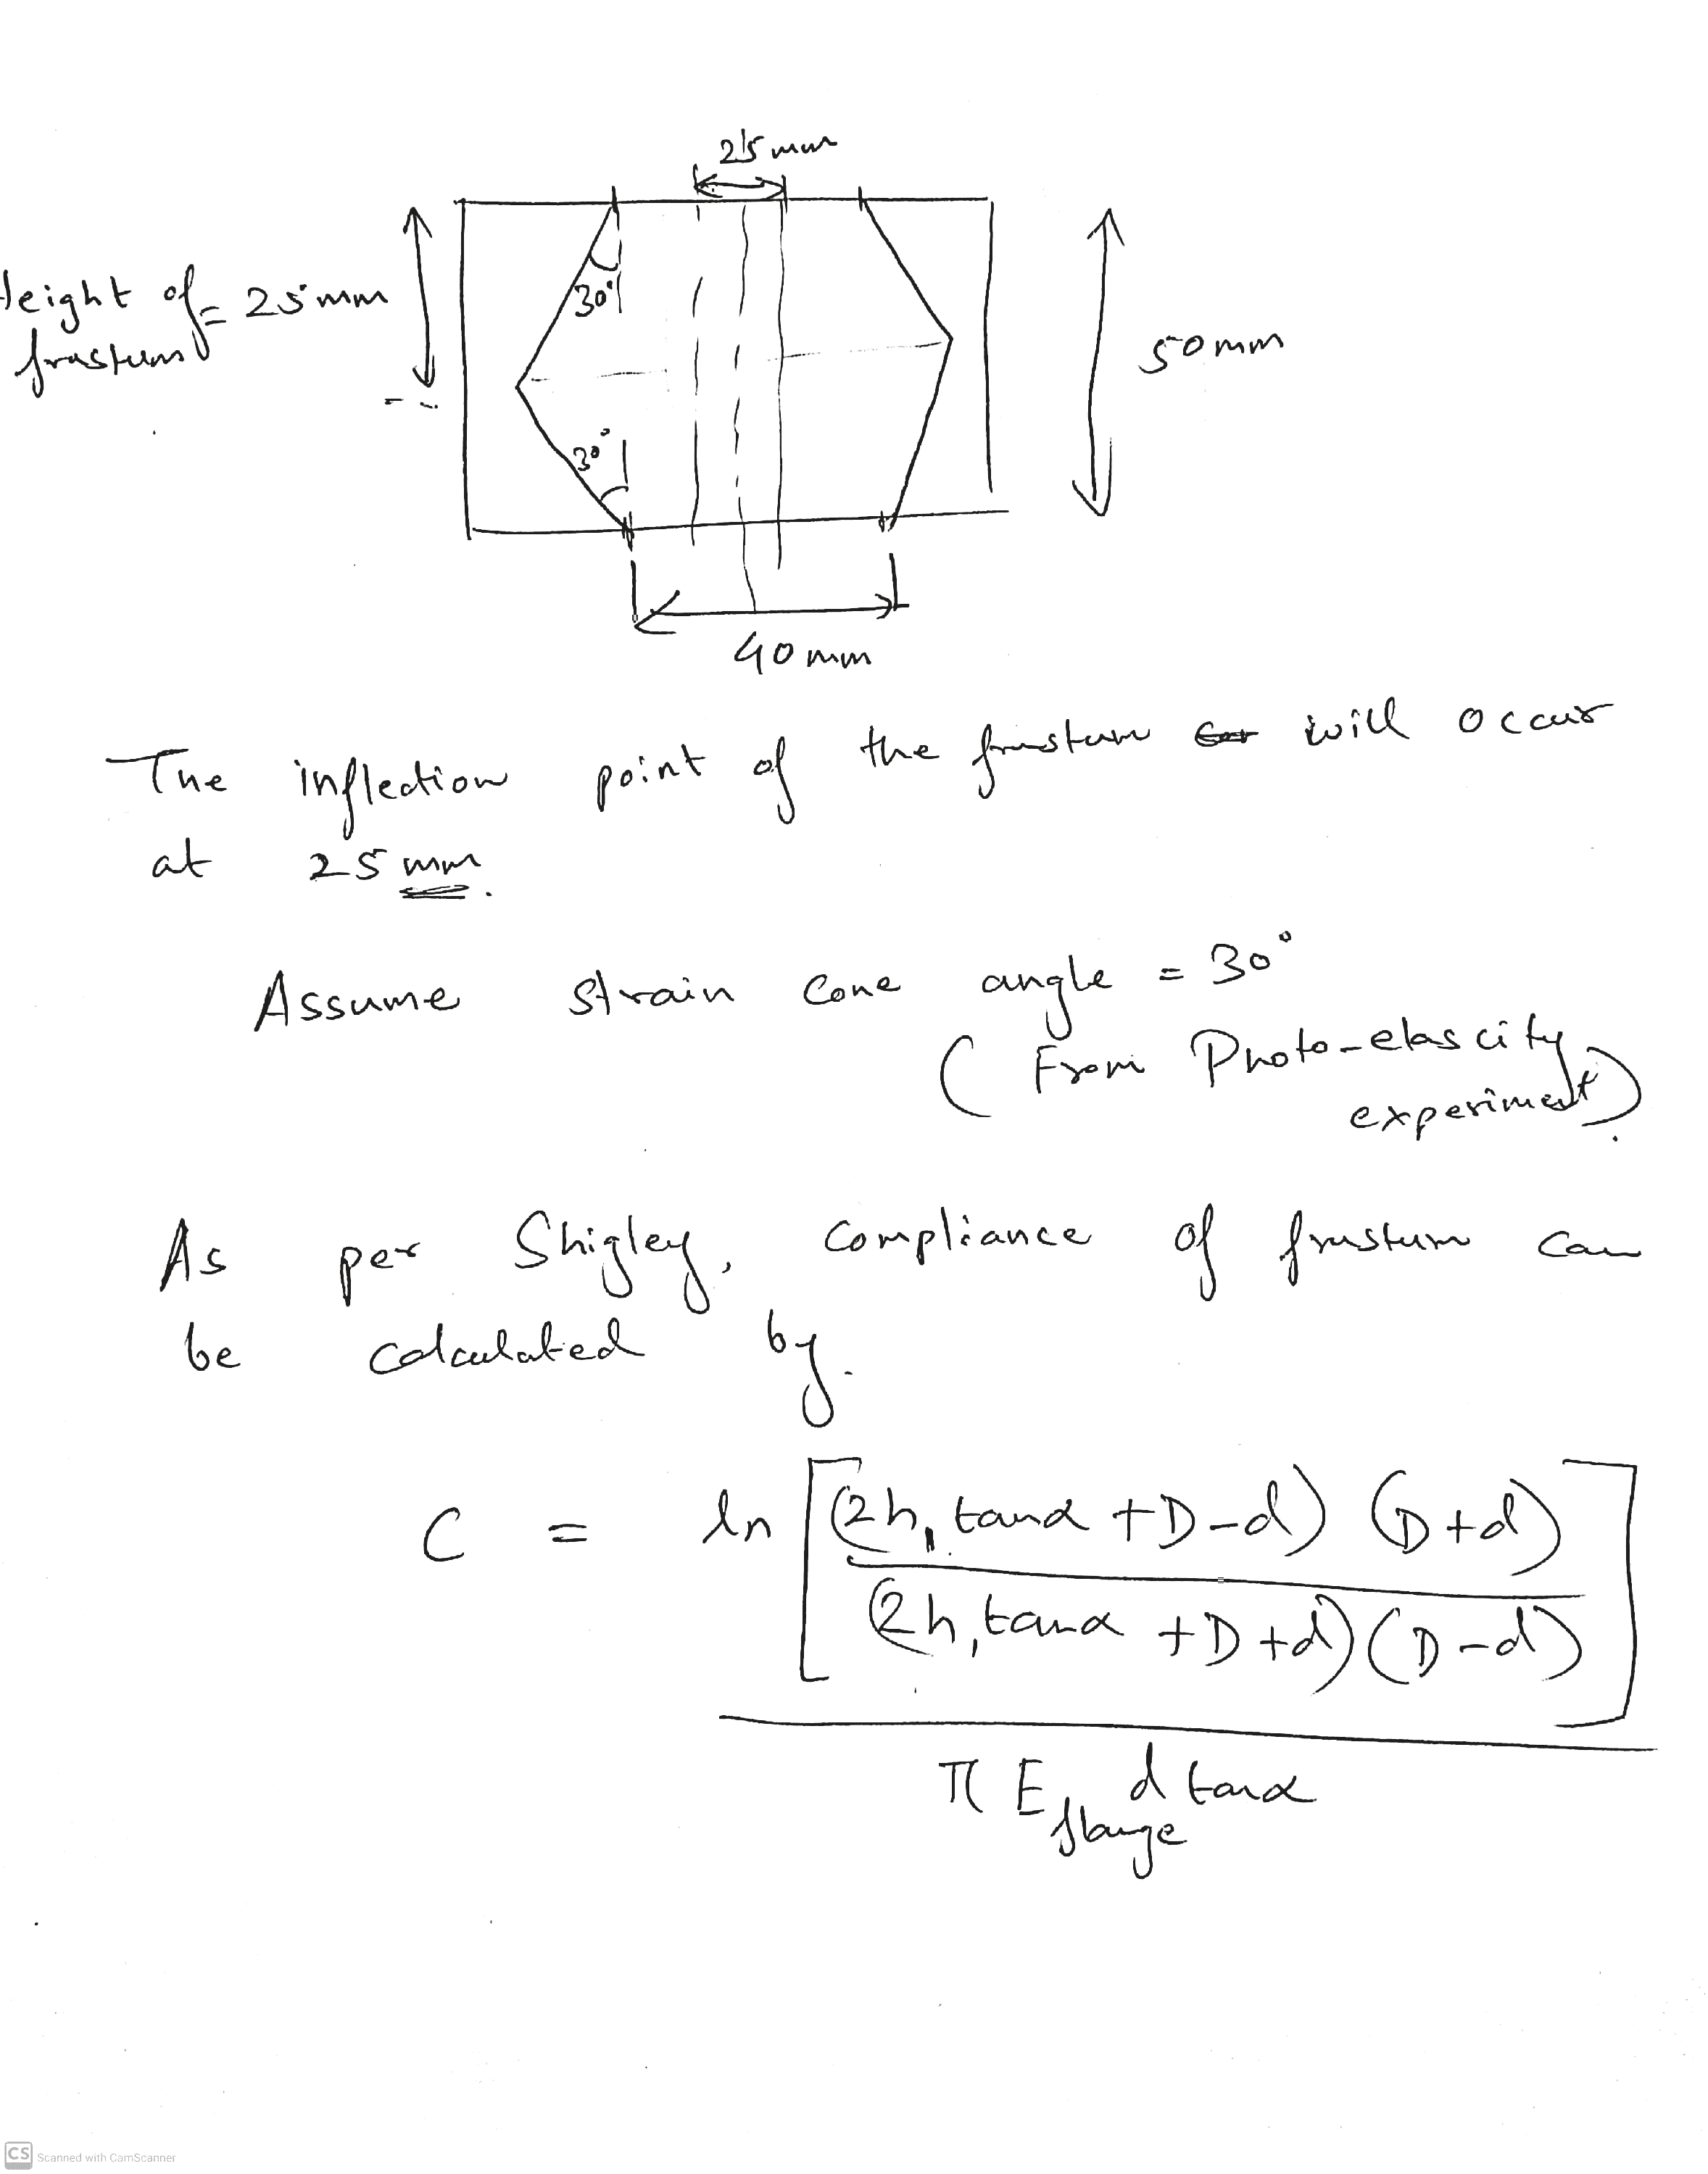 25 mm
Height of = 25 mm
frustum
30°
50 mm
30°
40 mm
The inflection point of the frustum will occur
at 25 mm.
Assume strain cone angle = 30°
( From Photo-elascity
experiment).
As per Shigley, compliance of frustum can
be calculated by.
C = ln [ (2h₁ tanα + D - d) (D + d)
(2h₁ tanα + D + d) (D - d) ]
π E flange d tanα
CS Scanned with CamScanner